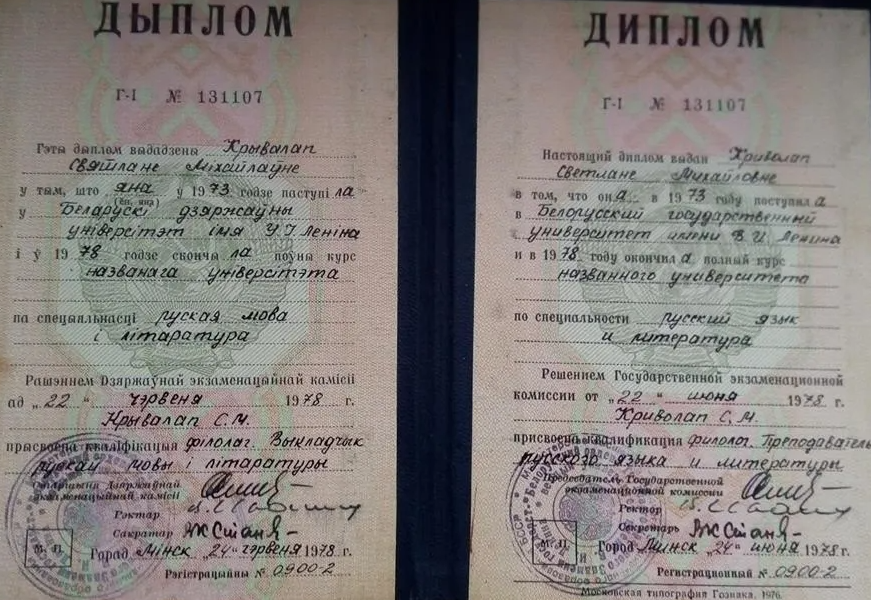 ДЫПЛОМ
Г-I № 131107
Гэты дыплом выдадзены Крывалап
Святлане Міхайлаўне
у тым, што яна у 1973 годзе паступіла
(ён, яна)
у Беларускі дзяржаўны
універсітэт імя У І Леніна
і ў 1978 годзе скончыла поўны курс
названага універсітэта
па спецыяльнасці руская мова
і літаратура
Рашэннем Дзяржаўнай экзаменацыйнай камісіі
ад „22“ чэрвеня 1978 г.
Крывалап С.М.
прысвоена кваліфікацыя філолаг. Выкладчык
рускай мовы і літаратуры
Старшыня Дзяржаўнай
экзаменацыйнай камісіі
Рэктар
Сакратар
М. П.
Горад Мінск „24“ чэрвеня 1978 г.
Рэгістрацыйны № 0900-2
ДИПЛОМ
Г-I № 131107
Настоящий диплом выдан Криволап
Светлане Михайловне
в том, что она в 1973 году поступила
в Белорусский государственный
университет имени В И Ленина
и в 1978 году окончила полный курс
названного университета
по специальности русский язык
и литература
Решением Государственной экзаменационной
комиссии от „22“ июня 1978 г.
Криволап С, М.
присвоена квалификация филолог. Преподаватель
русского языка и литературы
Председатель Государственной
экзаменационной комиссии
Ректор
Секретарь
Город Минск „24“ июня 1978 г.
Регистрационный № 0900-2
Московская типография Гознака. 1976.